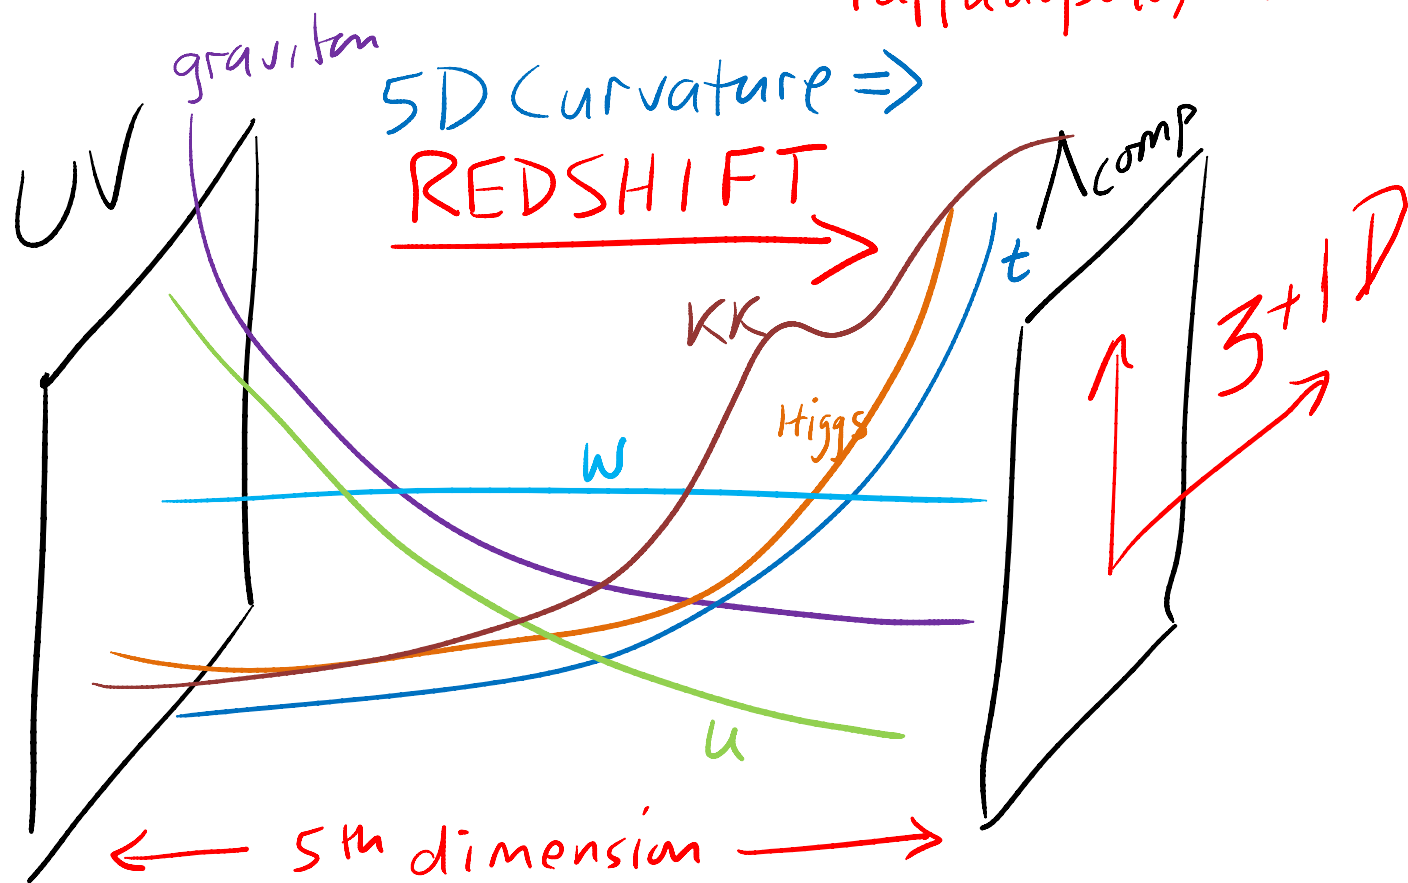 graviton
5D Curvature ⇒
UV
REDSHIFT
Λcomp
t
3+1D
KK
Higgs
W
u
5th dimension